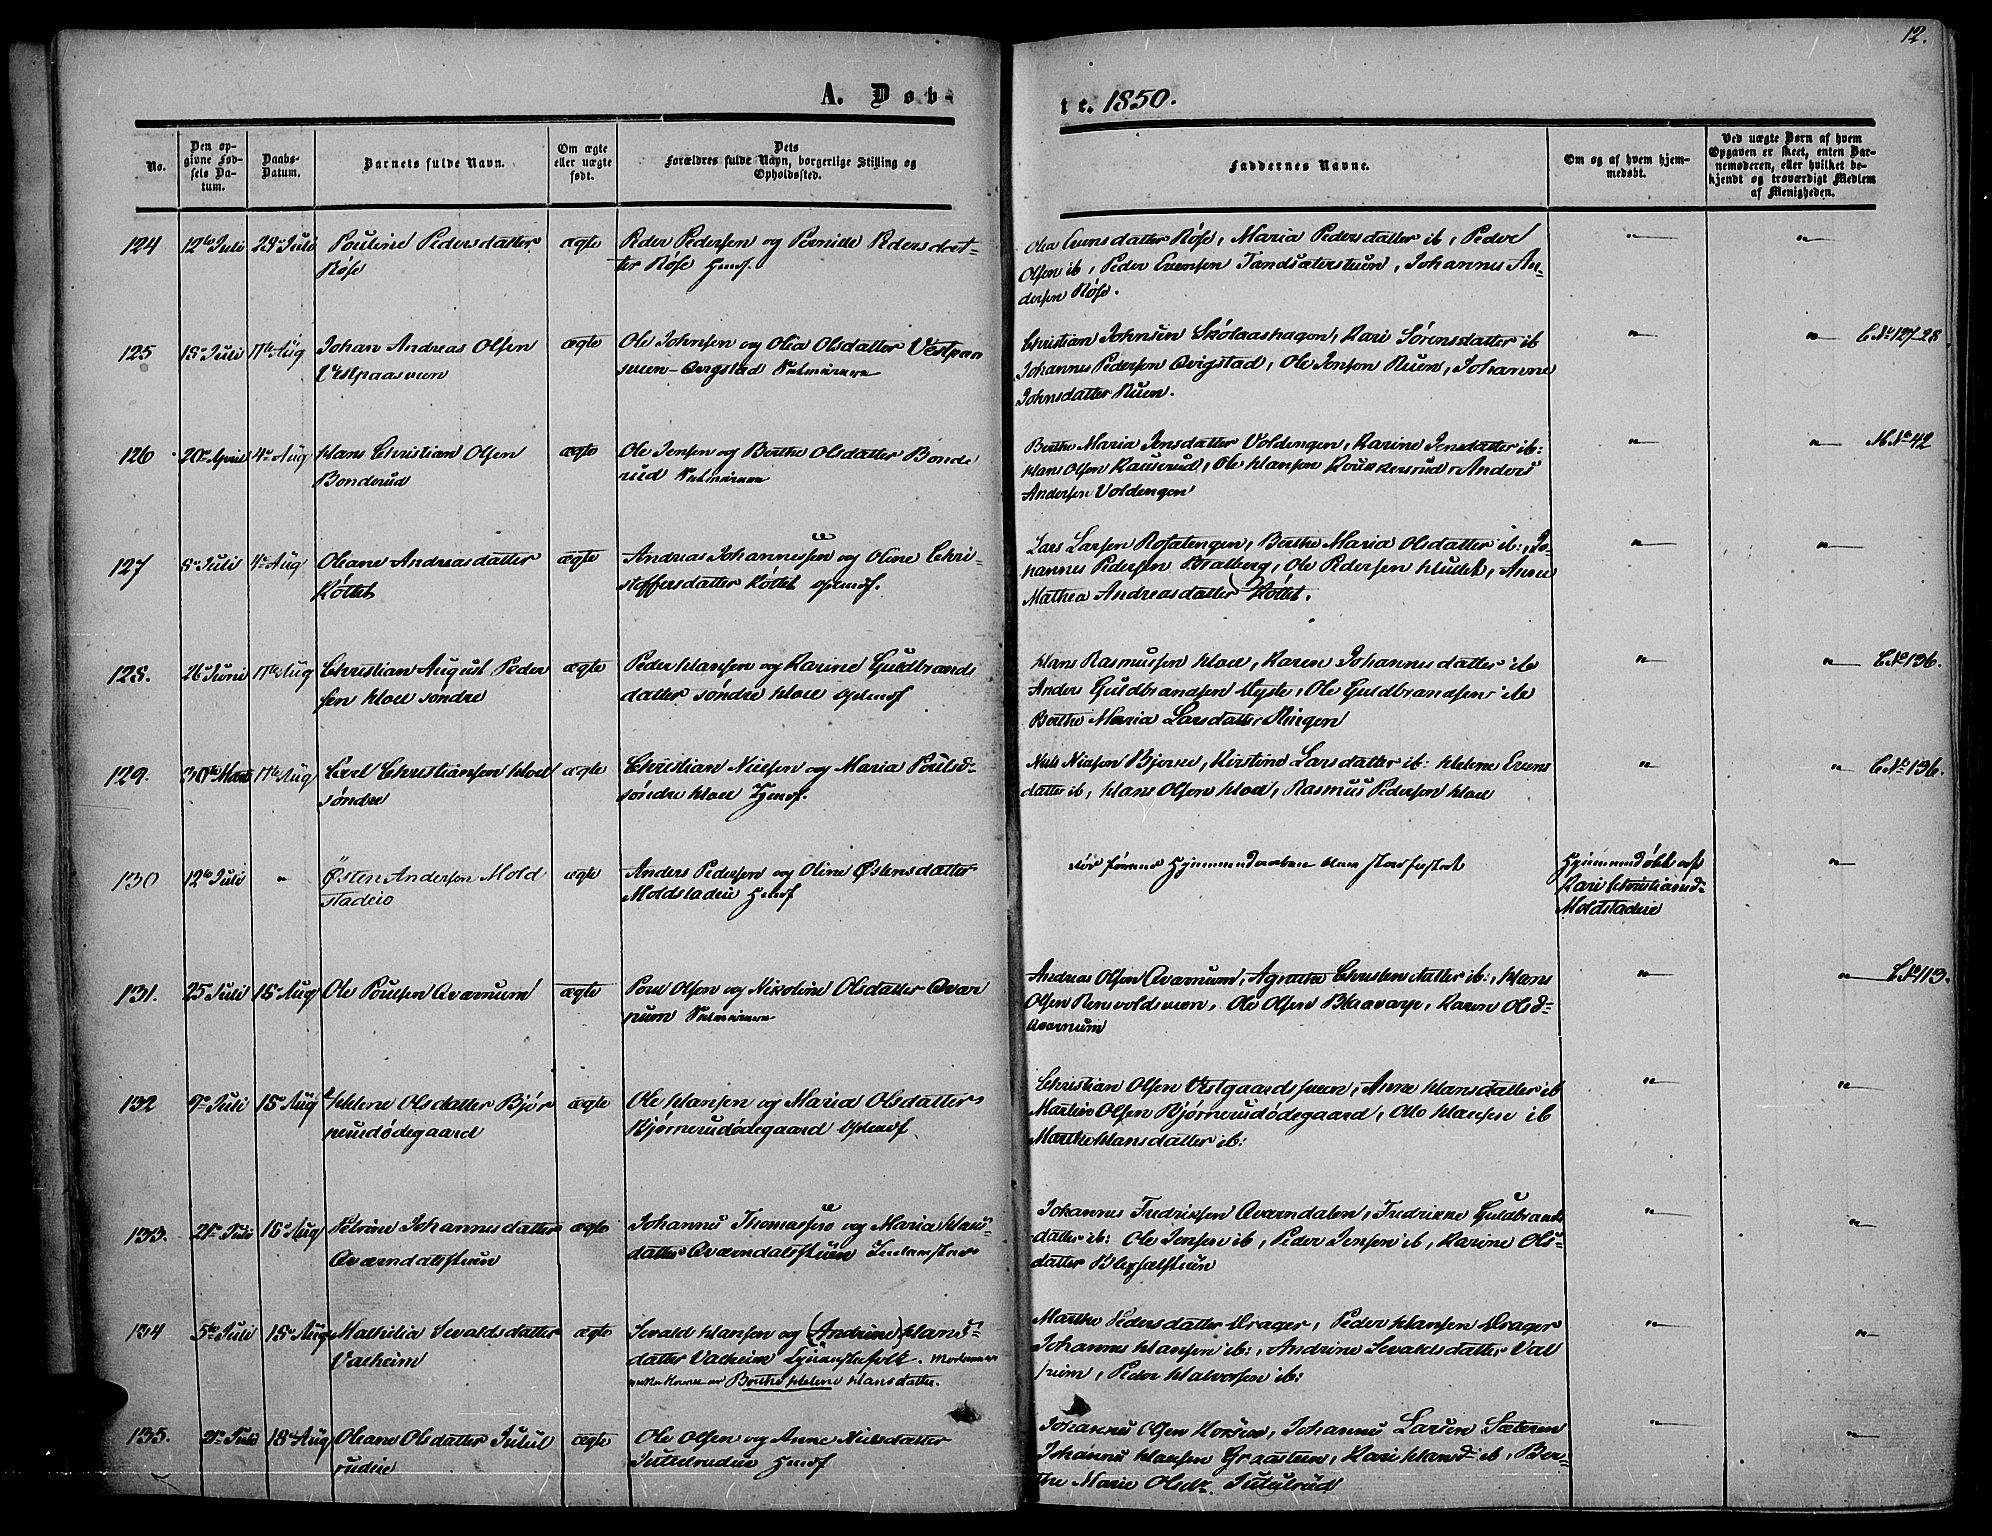 12.
A. Døb-
te. 1850.
No.
Den op-
givne Fød-
sels Da-
tum.
Daabs-
Datum.
Barnets fulde Navn.
Om ægte
eller uægte
født.
Dets
Forældres fulde Navn, borgerlige Stilling og
Opholdssted.
Faddernes Navne.
Om og af hvem hjem-
medøbt.
Ved uægte Børn af hvem
Opgaven er skeet, enten Bar-
nemoderen, eller hvilket be-
kjendt og troværdigt Medlem
af Menigheden.
124 12te Juli 28 Juli Pouline Pedersdatter ægte Peder Pedersen og Pernille Pedersdat-
Røse ter Røse
Olia Evensdatter Røse, Maria Pedersdatter ib, Peder
Olsen ib, Peder Evensen Sandsæterstuen, Johannes An-
dersen Røse.
125 18 Juli 11te Aug Johan Andreas Olsen ægte Ole Johnsen og Olia Olsdatter
Christian Johnsen Skolaashagen, Kari Sørensdatter ib
Johannes Pedersen Qvigstad, Ole Jensen Ruen, Johanne
Johnsdatter Ruen.
C No 127-28
126 20 April 4 Aug Hans Christian Olsen ægte Ole Jensen og Berthe Olsdatter Bonde
Bonderud rud
Berthe Maria Jensdatter Voldengen, Karine Jensdatter ib:
Hans Olsen Kauserud, Ole Hansen Anders
Andersen Voldengen
M No 42
127 8 Juli 4 Aug Oleane Andreasdatter ægte Andreas Johannessen og Oline Chri-
Køllet stoffersdatter Køllet
Lars Larsen Rosatengen, Berthe Maria Olsdatter ib:, Jo-
hannes Pedersen Braaberg, Ole Pedersen, Anne
Mathea Andreasdatter Køllet.
128. 26 Juni 11te Aug Christian August Peder ægte Peder Hansen og Karine Guldbrands
sen Hoel søndre datter søndre Hoel
Hans Rasmussen Hoel, Karen Johannesdatter ib
Anders Guldbrandsen, Ole Guldbrandsen ib
Berthe Maria Larsdatter Ringen
C No 136.
129. 30te Marts 11te Aug Carl Christiansen Hoel ægte Christian Nielsen og Maria Poulsd-
søndre søndre Hoel
Niels Nielsen, Kirstine Larsdatter ib: Helene Evens
datter ib, Hans Olsen Hoel, Rasmus Pedersen Hoel
C No 136.
130 12te Juli Østen Andersen Mold ægte Anders Pedersen og Oline Østensdatter
stadeie Moldstadeie
Hjemmedøbt af
Kari Christiansd-
Moldstadeie
131. 25 Juli 18 Aug Ole Poulsen Qværnum ægte Poul Olsen og Nikoline Olsdatter Qvær
num
Andreas Olsen Qværnum, Agnethe Christensdatter ib:, Hans
Olsen, Ole Olsen, Karen Olsd-
Qværnum
C No 113.
132 9 Juli 18 Aug Helene Olsdatter Bjør ægte Ole Hansen og Maria Olsdatter
nerudødegaard Bjørnerudødegaard
Christian Olsen Vestgaardstuen, Anne Hansdatter ib
Martin Olsen Bjørnerudødegaard, Otto Hansen ib
Marthe Hansdatter ib:
133. 21 Juli 18 Aug Petrine Johannesdatter ægte Johannes Thomassen og Maria Hans
Qværndalsstuen datter Qværndalsstuen
Johannes Fredriksen Qværndalen, Fredrikke Guldbrands
datter ib: Ole Jensen ib, Peder Jensen ib, Karine Ols-
datter
134 5te Juli 18 Aug Mathilia Sevaldsdatter ægte Sevald Hansen og (Andrine) Hans-
Valheim datter Valheim Tjenestefolk.
Berthe Helene Hansdatter.
Marthe Pedersdatter Drager, Peder Hansen Drager
Johannes Hansen ib:, Andrine Sevaldsdatter Val
heim, Peder Halvorsen ib:
135. 21 Juli 18 Aug Oleane Olsdatter Julul ægte Ole Olsen og Anne Nielsdatter
rudeie Jululrudeie
Johannes Olsen Korsen, Johannes Larsen Sæteren
Johannes Hansen Graasteen, Kari Hansd ib, Ber-
the Marie Olsdr. Jululrud